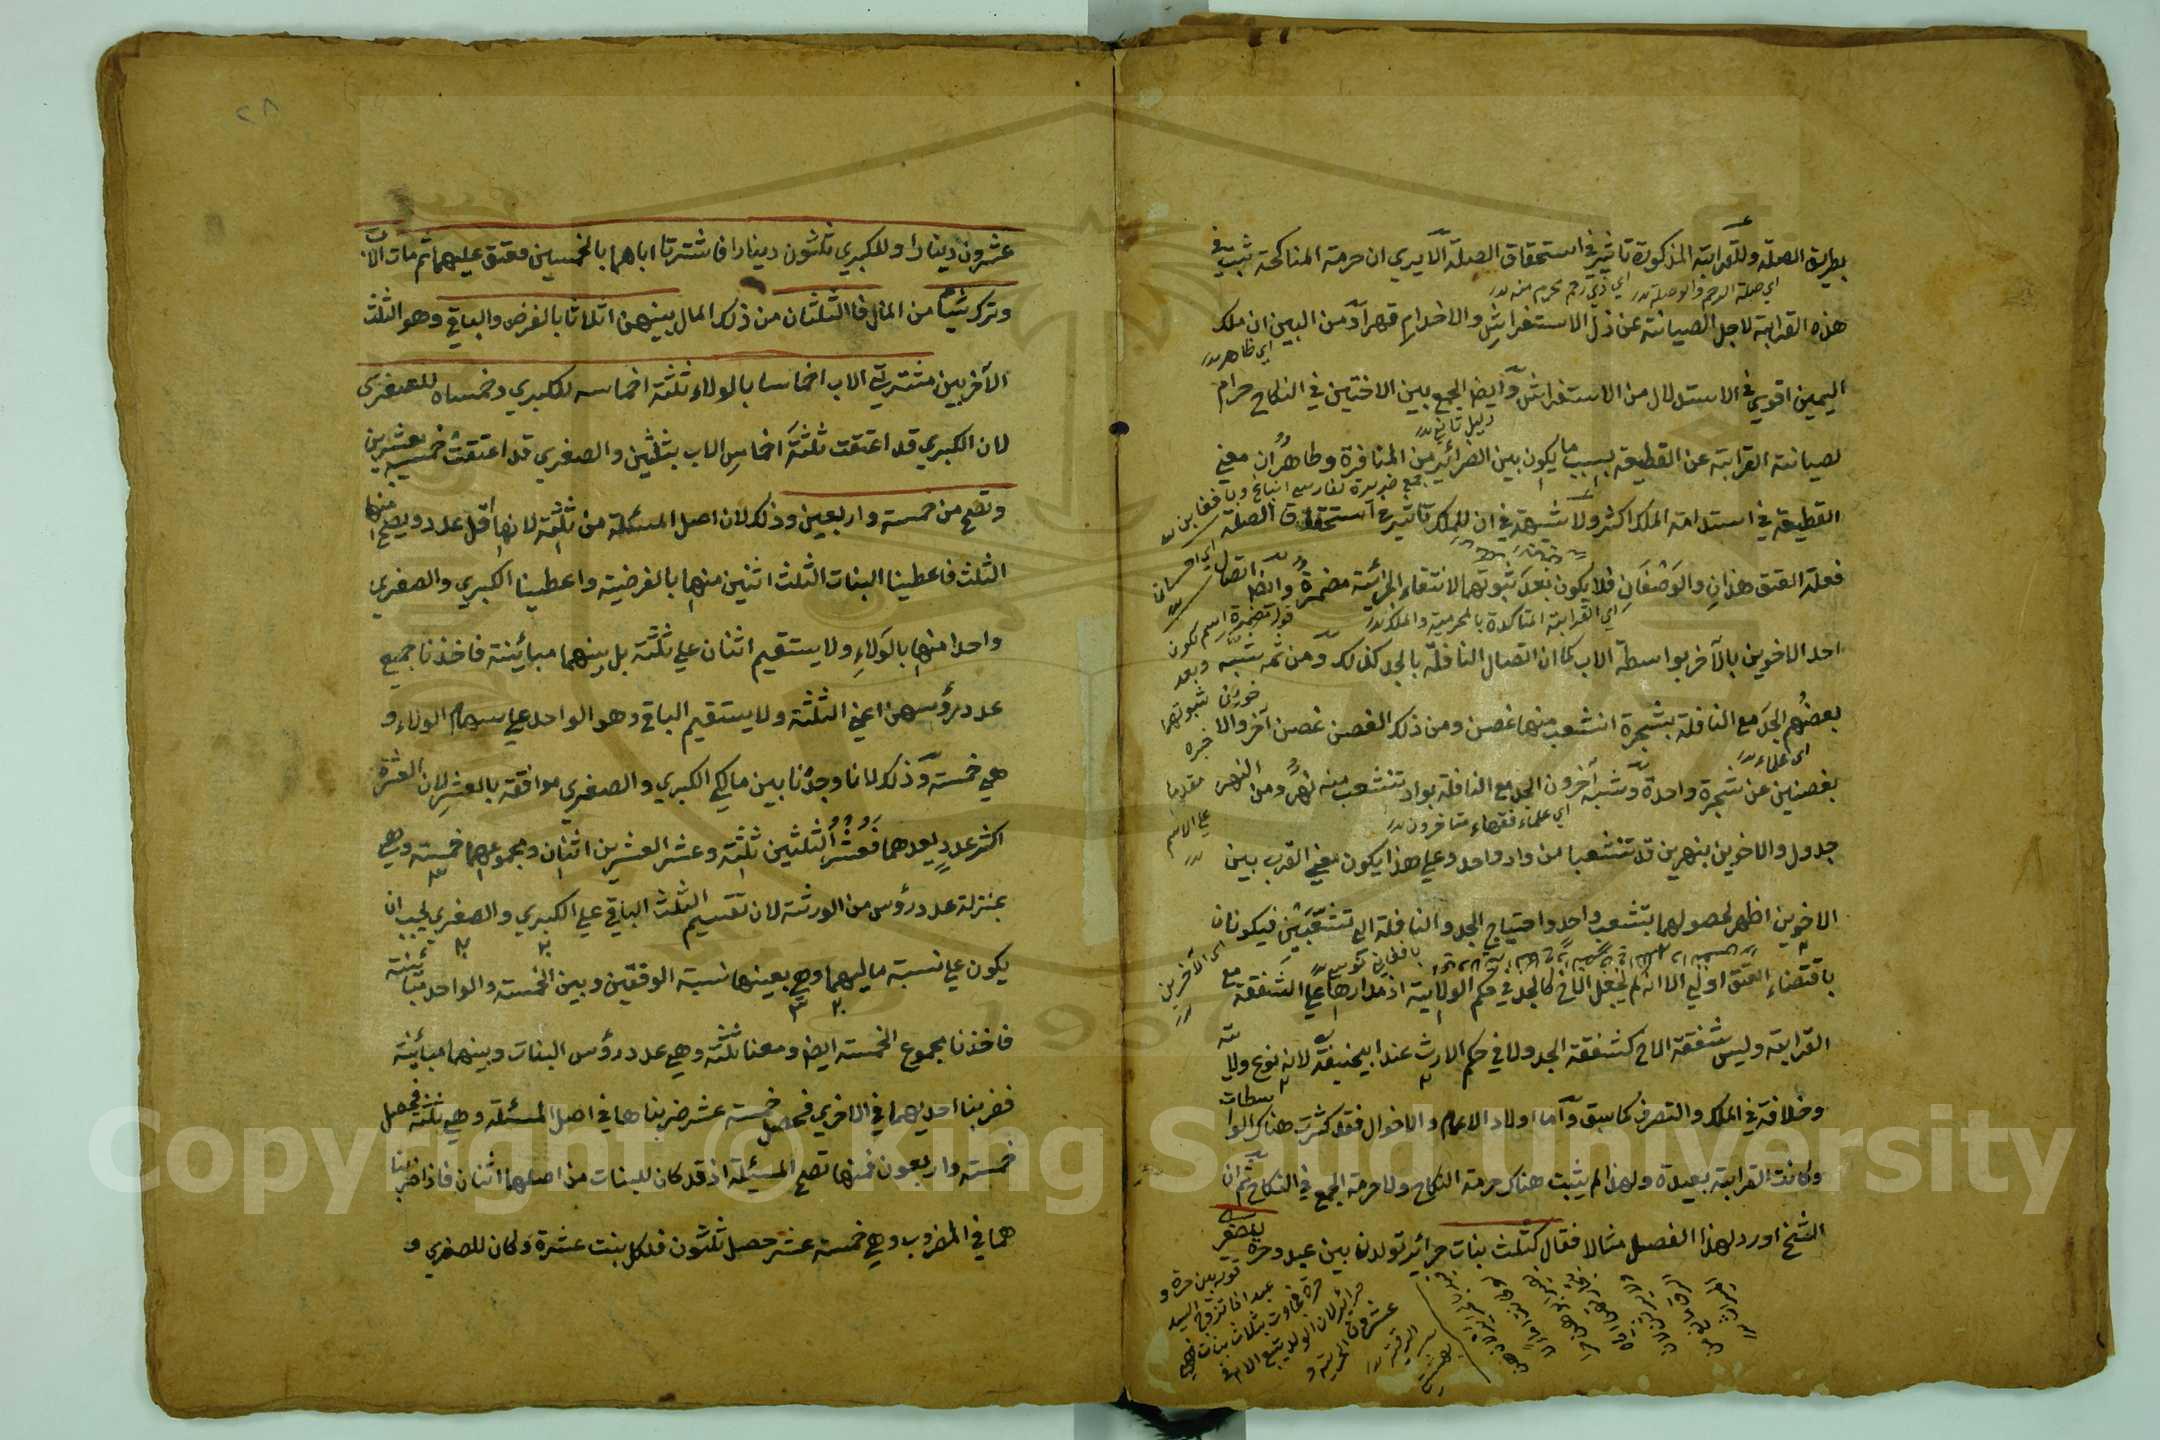 بطريق الصلة وللقرابة المذكورة تاثير في استحقاق الصلة الا يري ان حرمة المناكحة ثبت في
اي صلة الرحم والوصلة اي ذي رحم محرم منه
هذه القرابة لاجل الصيانة عن ذل الاستفراش والاخدام قهرا ومن البين ان ملك
اي ظاهر
اليمين اقوي في الاستذلال من الاستفراش وايضا الجمع بين الاختين في النكاح حرام
دليل ثاني
لصيانة القرابة عن القطيعة بسبب ما يكون بين الضرائر من المنافرة وظاهر ان معني
القطيعة في استدامة الملك اكثر ولا شبهة في ان للملك تاثير في استحقاق الصلة
فعلة العتق هذان والوصفان فلا يكون بعد ثبوتهما لانتفاء الجزئية مضمرة وايضا اتصال
اي القرابة المتاكدة بالمحرمية والملك
احد الاخوين بالآخر بواسطة الاب كما ان اتصال النافلة بالجد كذلك ومن ثمه شبه
بعضهم الجد مع النافلة بشجرة انشعب منها غصن ومن ذلك الغصن غصن آخر والا خوين
اي علماء
بغصنين عن شجرة واحدة وشبه آخرون الجد مع النافلة بواد تنشعب منه نهر ومن النهر
اي علماء فقهاء متاخرون
جدول والاخوين بنهرين قد تنشعبا من واد واحد وعلي هذا يكون معني القرب بين
الاخوين اظهر لحصولهما بتشعب واحد واحتياج الجد والنافلة الي تشعبين فيكونان
باقتضاء العتق اولي الا انه لم يجعل الاخ كالجد في حكم الولاية اذ مدارها علي الشفقة مع
القرابة وليس شفقة الاخ كشفقة الجد ولا في حكم الارث عند ابيحنيفة لانه نوع ولاية
وخلافة في الملك والتصرف كما سبق واما اولاد الاعمام والاخوال فقد كثرت هناك الواسطات
وكانت القرابة بعيدة ولهذا لم يثبت هناك حرمة النكاح ولا حرمة الجمع في النكاح ثم ان
الشيخ اورد لهذا الفصل مثالا فقال كثلث بنات حرائر تولدن بين عبد وحرة للصغري
قوله بين حرة و
عبد اذا تزوج السيد
حرة فجاءت بثلاث بنات فهي
حرائر لان الولد يتبع الام في
الحرية و
الرقية
٢٨
عشرون دينارا وللكبري ثلثون دينارا فاشترتا اباهما بالخمسين فعتق عليهما ثم مات الاب
وترك شيئا من المال فالثلثان من ذلك المال بينهن اثلاثا بالفرض والباقي وهو الثلث
الآخر بين مشتريتي الاب اخماسا بالولاء ثلثة اخماسه للكبري وخمساه للصغري
لان الكبري قد اعتقت ثلثة اخماس الاب بثلثين والصغري قد اعتقت خمسيه بعشرين
وتصح من خمسة واربعين وذلك لان اصل المسئلة من ثلثة لانها اقل عدد ويصح منها
الثلث فاعطينا البنات الثلث اثنين منها بالفرضية واعطينا الكبري والصغري
واحدا منها بالولاء ولا يستقيم اثنان علي ثلثة بل بينهما مبائنة فاخذنا جميع
عدد رؤسهن اعني الثلثة ولا يستقيم الباقي وهو الواحد علي سهام الولاء و
هي خمسة وذلك لانا وجدنا بين مالي الكبري والصغري موافقة بالعشر لان العشرة
اكثر عدد يعدهما فعشر الثلثين ثلثة وعشر العشرين اثنان ومجموعهما خمسة وهي
بمنزلة عدد رؤس من الورثة لان تقسيم الثلث الباقي علي الكبري والصغري يجب ان
يكون علي نسبة ماليهما وهي بعينها نسبة الوفقين وبين الخمسة والواحد مبائنة
فاخذنا مجموع الخمسة ايضا ومعنا ثلثة وهي عدد رؤس البنات وبينهما مبائنة
فضربنا احديهما في الاخري فحصل خمسة عشر ضربناها في اصل المسئلة وهي ثلثة فحصل
خمسة واربعون فمنها تصح المسئلة اذ قد كان للبنات من اصلها اثنان فاذا ضربنا
هما في المضروب وهي خمسة عشر حصل ثلثون فلكل بنت عشرة وكان للصغري و
Copyright © King Saud University
1957